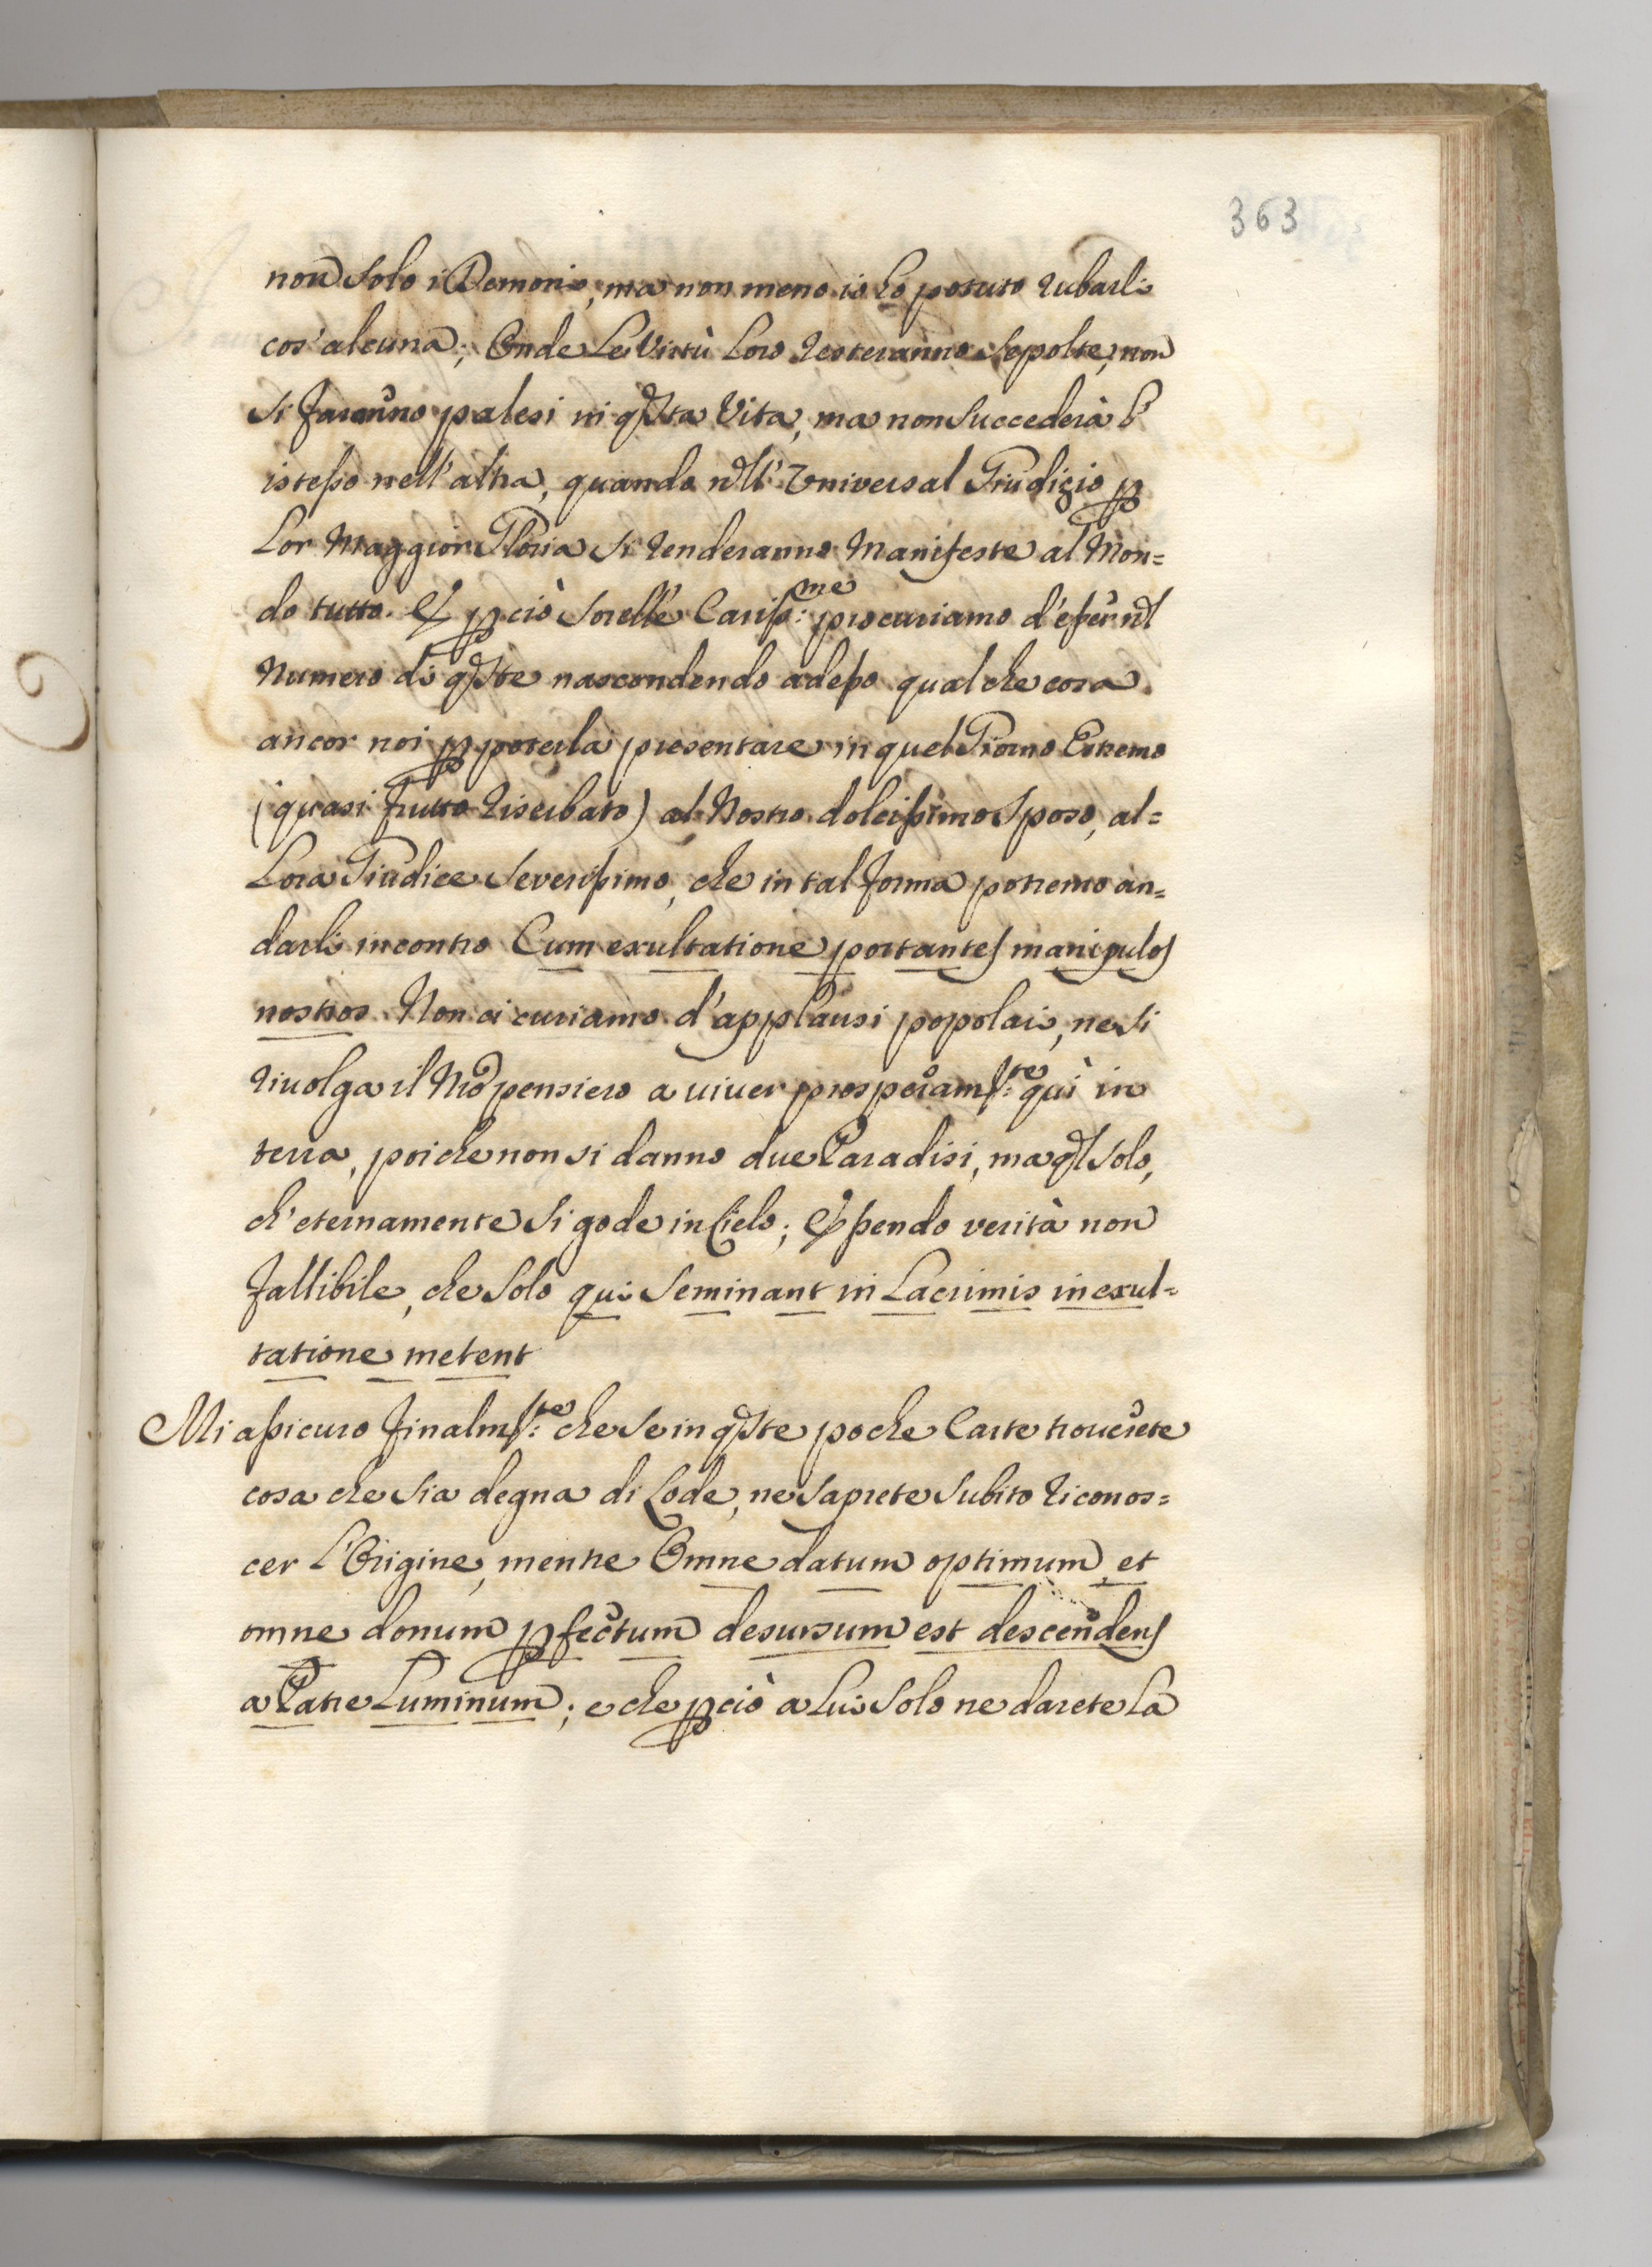 363
non solo i Demonij, ma non meno io hò potuto rubarli
cos'alcuna; Onde Le Virtù Loro resteranno sepolte, non
si faranno palesi in q̃sta Vita, ma non succederà l'
istesso nell'altra, quando nẽll'Universal Giudizio p̱
Lor Maggior Gloria si renderanno Manifeste al Mon=
do tutto. Et p̱ciò Sorelle Cariss:me procuriamo d'esser nẽl
Numero di q̃ste nascondendo adesso qualche cosa
ancor noi p̱ poterla presentare in quel Giorno Estremo
(quasi frutto riserbato) al Nostro dolcissimo Sposo, al=
Lora Giudice Severissimo, che in tal forma potremo an=
darli incontro Cum exultatione portantes manipulos
nostros. Non ci curiamo d'applausi popolari, ne si
rivolga il Nr̃o pensiero a viver prosperam:te quì in
terra, poiche non si danno due Paradisi, ma q̃l solo,
ch'eternamente si gode in Cielo; Essendo verità non
fallibile, che solo qui Seminant in Lacrimis in exul=
tatione metent
Mi assicuro finalm:te che se in q̃ste poche Carte troverete
cosa che sia degna di Lode, ne saprete subito riconos=
cer L'Origine, mentre Omne datum optimum, et
omne donum p̱fectum desursum est descendens
a Patre Luminum; e che p̱ciò a Lui solo ne darete La